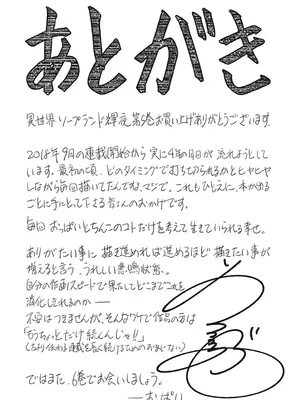 あとがき
異世界ソープランド輝夜 第5巻お買い上げありがとうございます。
2018年9月の連載開始から実に4年の月日が流れようとして
います。最初の頃、どのタイミングで打ち切られるかとヒヤヒヤ
しながら毎回描いてたんですね、マジで。これもひとえに、本が出る
ごとに手にとって下さる皆さんのおかげです。
毎回おっぱいとちんこのコトだけを考えて生きていられる幸せ。
ありがたい事に描き進めれば進めるほど描きたい事が
増えると言う、うれしい悲鳴状態。
自分の作画スピードで果たしてどこまでこれを
消化しきれるのか——
不安はつきませんが、そんなワケで作品の方は
「もうちょっとだけ続くんじゃ!!」
ではまた、6巻でお会いしましょう。